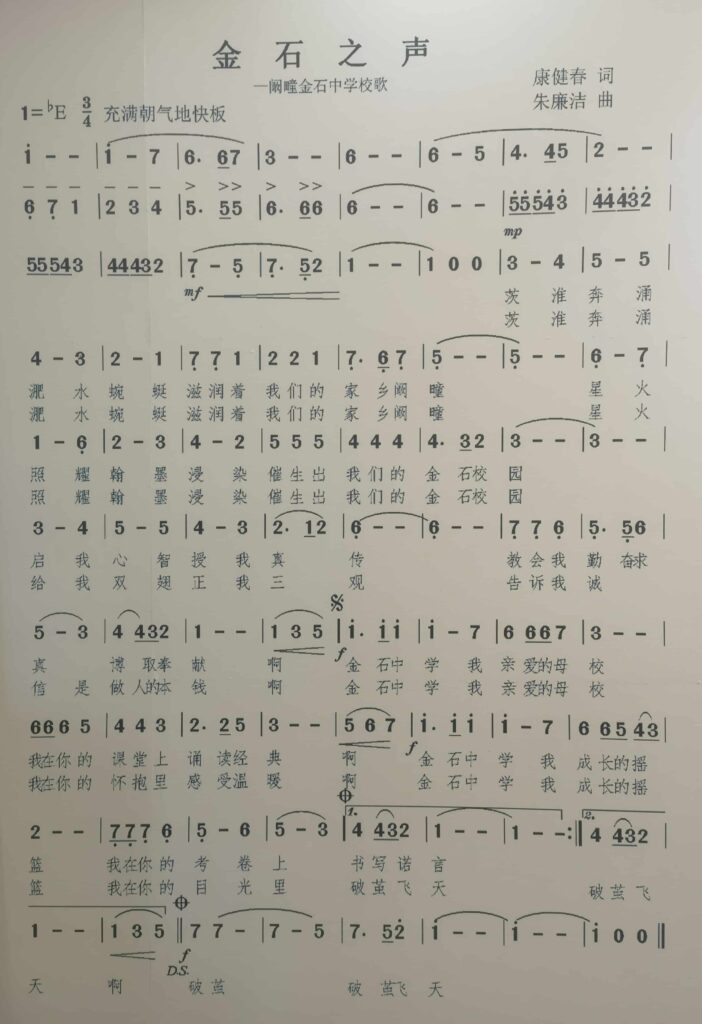 金石之声
—阚疃金石中学校歌
康健春 词
朱廉洁 曲
1=♭E 3/4 充满朝气地快板
i - - | i - 7 | 6. 67 | 3 - - | 6 - - | 6 - 5 | 4. 45 | 2 - - |
6 7 1 | 2 3 4 | 5. 55 | 6. 66 | 6 - - | 6 - - | 55543 | 44432 |
mp
55543 | 44432 | 7 - 5 | 7. 52 | 1 - - | 1 0 0 | 3 - 4 | 5 - 5 |
mf
茨 淮 奔 涌
茨 淮 奔 涌
4 - 3 | 2 - 1 | 7 7 1 | 2 2 1 | 7. 67 | 5 - - | 5 - - | 6 - 7 |
淝 水 蜿 蜒 滋润着 我们的 家 乡阚 疃 星 火
淝 水 蜿 蜒 滋润着 我们的 家 乡阚 疃 星 火
1 - 6 | 2 - 3 | 4 - 2 | 5 5 5 | 4 4 4 | 4. 32 | 3 - - | 3 - - |
照 耀 翰 墨 浸 染 催生出 我们的 金 石校 园
照 耀 翰 墨 浸 染 催生出 我们的 金 石校 园
3 - 4 | 5 - 5 | 4 - 3 | 2. 12 | 6 - - | 6 - - | 7 7 6 | 5. 56 |
启 我 心 智 授 我 真 传 教会我 勤 奋求
给 我 双 翅 正 我 三 观 告诉我 诚
5 - 3 | 4 432 | 1 - - | 1 3 5 | i. ii | i - 7 | 6 667 | 3 - - |
f
真 博 取奉 献 啊 金 石中 学 我 亲 爱的母 校
信 是 做 人的本 钱 啊 金 石中 学 我 亲 爱的母 校
666 5 | 4 4 3 | 2. 25 | 3 - - | 5 6 7 | i. ii | i - 7 | 6 65 43 |
f
我在你的 课堂上 诵 读经 典 啊 金 石中 学 我 成 长的摇
我在你的 怀抱里 感 受温 暖 啊 金 石中 学 我 成 长的摇
1. 2.
2 - - | 777 6 | 5 - 6 | 5 - 3 | 4 432 | 1 - - | 1 - - :‖ 4 432 |
篮 我在你的 考 卷 上 书写诺 言
篮 我在你的 目 光 里 破茧飞 天 破茧飞
1 - - | 1 3 5 ‖ 7 7 - | 7 - 5 | 7. 52 | i - - | i - - | i 0 0 ‖
f
D.S.
天 啊 破茧 破 茧飞 天